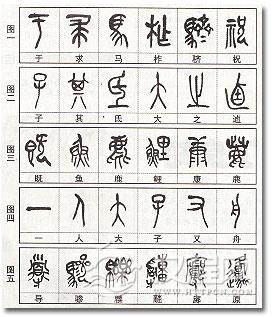 图一
于 求 马 柞 骄 祝
图二
子 其 氏 大 之 逌
图三
既 鱼 鹿 鲤 康 麃
图四
一 人 大 子 又 舟
图五
导 骖 原